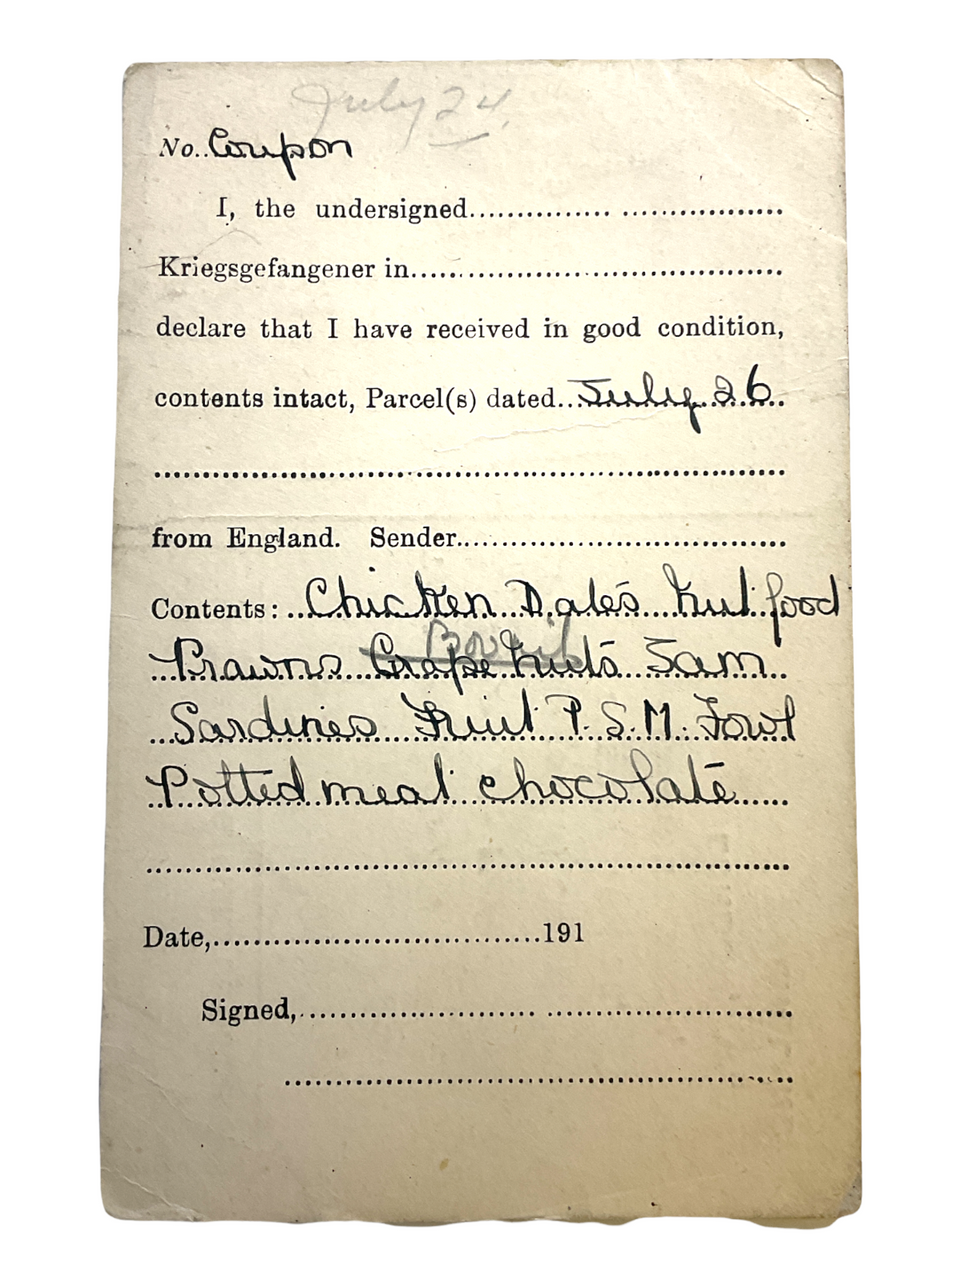 July 24.
No. Coupon
I, the undersigned.................................
Kriegsgefangener in.......................................
declare that I have received in good condition,
contents intact, Parcel(s) dated...July 26..
..................................................................
from England. Sender...................................
Contents: ..Chicken Dates Nut food
Bovril
Prawns Grape Nuts Jam
Sardines Fruit P.S.M. Fowl
Potted meat chocolate
..................................................................
Date,..................................191
Signed,.................................................
....................................................